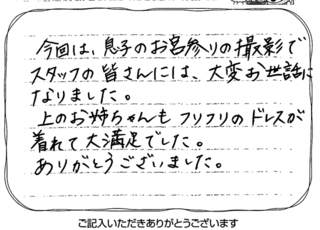 今回は、息子のお宮参りの撮影で
スタッフの皆さんには、大変お世話に
なりました。
上のお姉ちゃんもフリフリのドレスが
着れて大満足でした。
ありがとうございました。
ご記入いただきありがとうございます